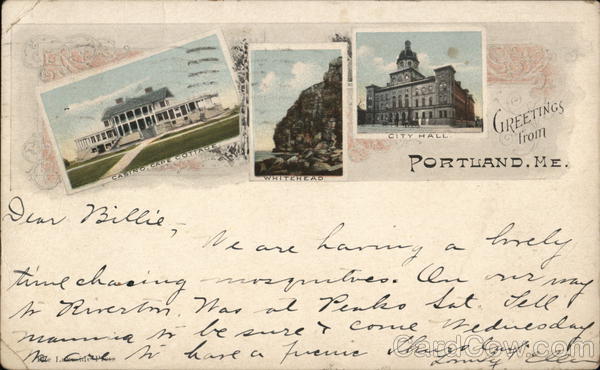 CASINO, CAPE COTTAGE
WHITEHEAD
CITY HALL
GREETINGS
from
PORTLAND, ME.
Dear Billie,
We are having a lovely
time chasing mosquitoes. On our way
to Riverton. Was at Peaks Sat. Tell
mamma to be sure & come Wednesday
to have a picnic
CardCow.com